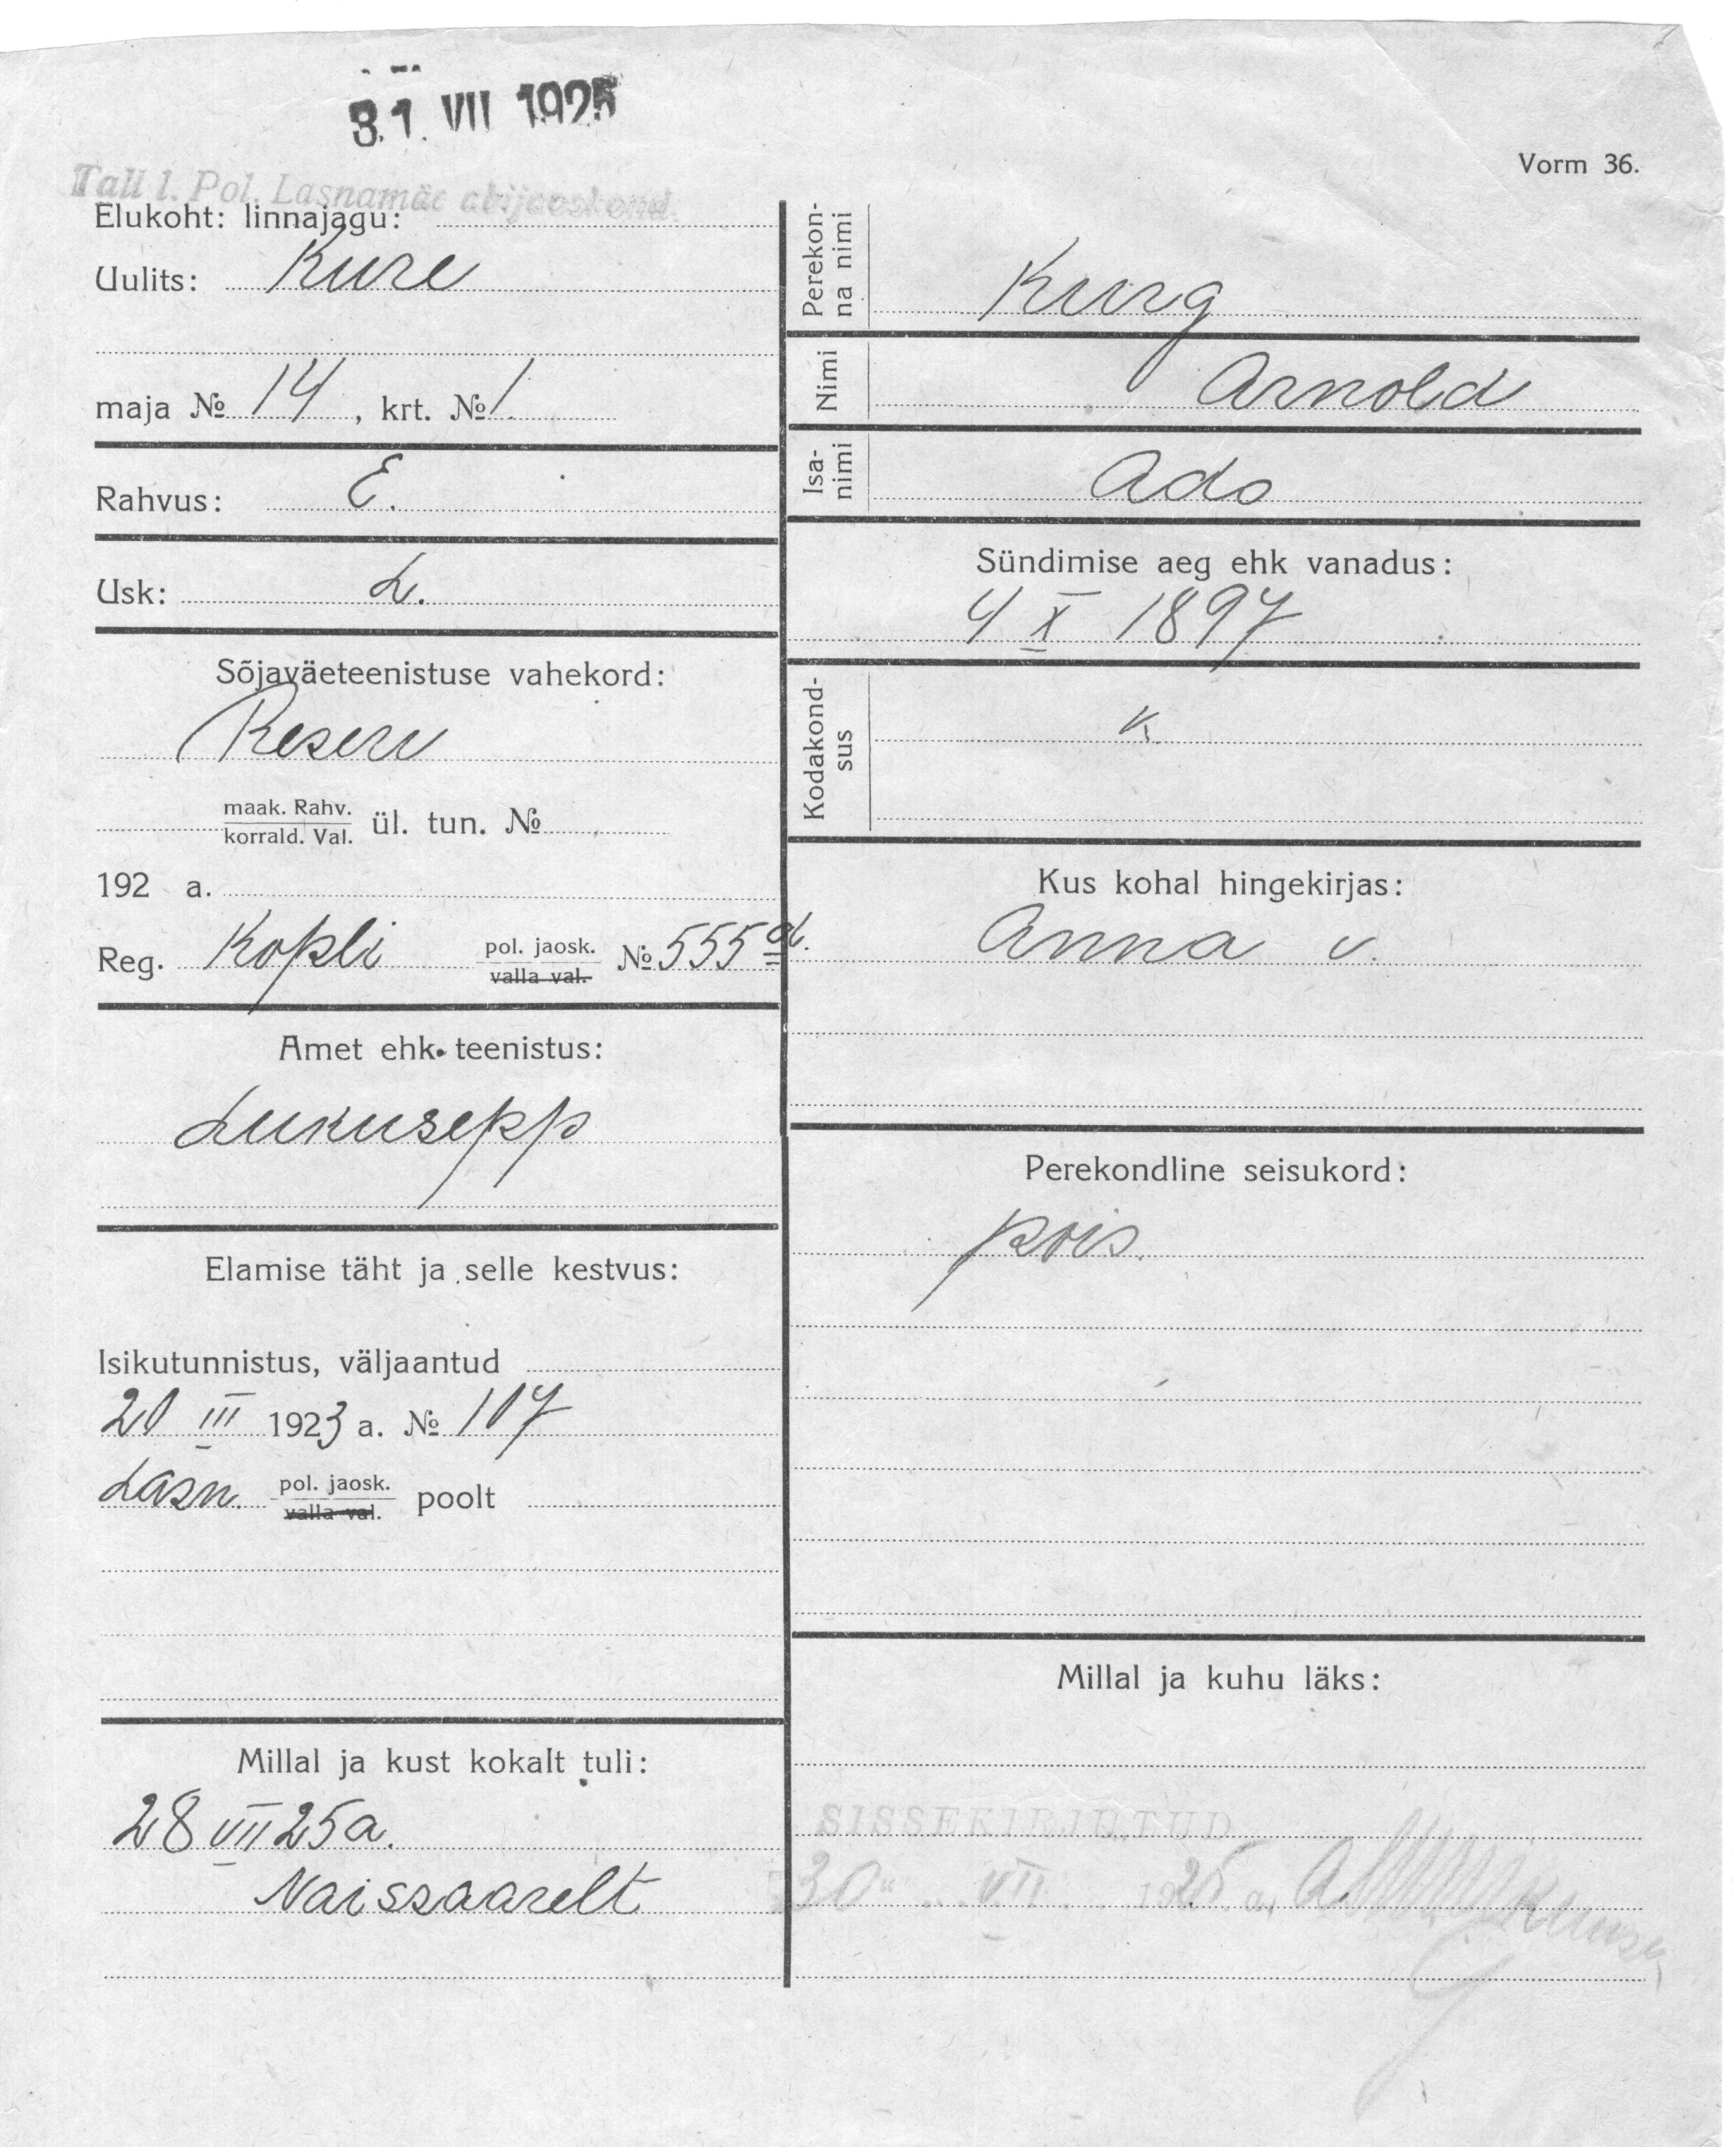 31. VII 1925
Tall 1. Pol. Lasnamäe abijaoskond.
Vorm 36.
Elukoht: linnajagu:
Uulits: Kure
maja № 14, krt. № 1
Rahvus: E.
Usk: L.
Sõjaväeteenistuse vahekord:
Reserv
maak. Rahv.
korrald. Val. ül. tun. №
192 a.
Reg. Kopli pol. jaosk. № 555
valla val.
Amet ehk teenistus:
Lukusepp
Elamise täht ja selle kestvus:
Isikutunnistus, väljaantud
20 III 1923 a. № 107
Lasn. pol. jaosk. poolt
valla val.
Millal ja kust kokalt tuli:
28 VII 25 a.
Naissaarelt
Perekon-
na nimi
Kurg
Nimi Arnold
Isa-
nimi
Ado
Sündimise aeg ehk vanadus:
4 X 1897
Kodakond-
sus
K
Kus kohal hingekirjas:
Anna v.
Perekondline seisukord:
pois.
Millal ja kuhu läks:
SISSEKIRJUTUD
30" VII 1925 a,